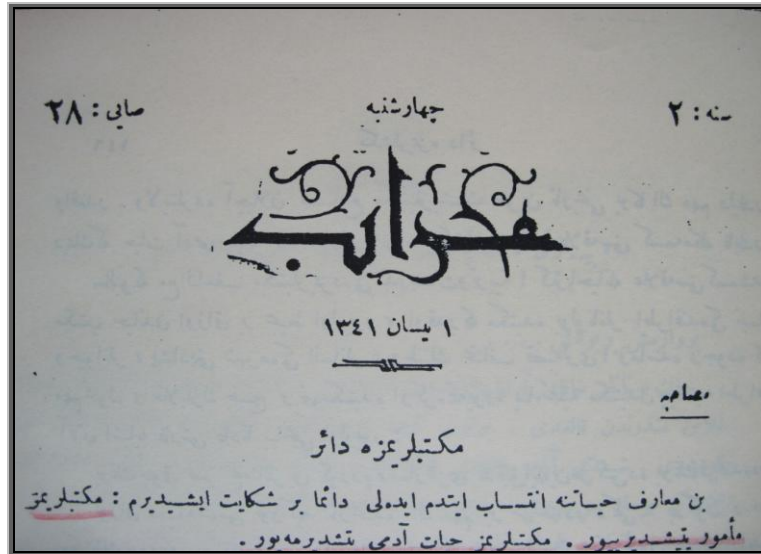 سنه : ٢ چهارشنبه صايى : ٢٨
محراب
١ نيسان ١٣٤١
مصاحبه
مكتبلريمزه دائر
بن معارف حياتنه انتساب ايتدم ايده‌لى دائما بر شكايت ايشيديرم : مكتبلريمز
مأمور يتشديرييور . مكتبلريمز حيات آدمى يتشديرمه‌يور .